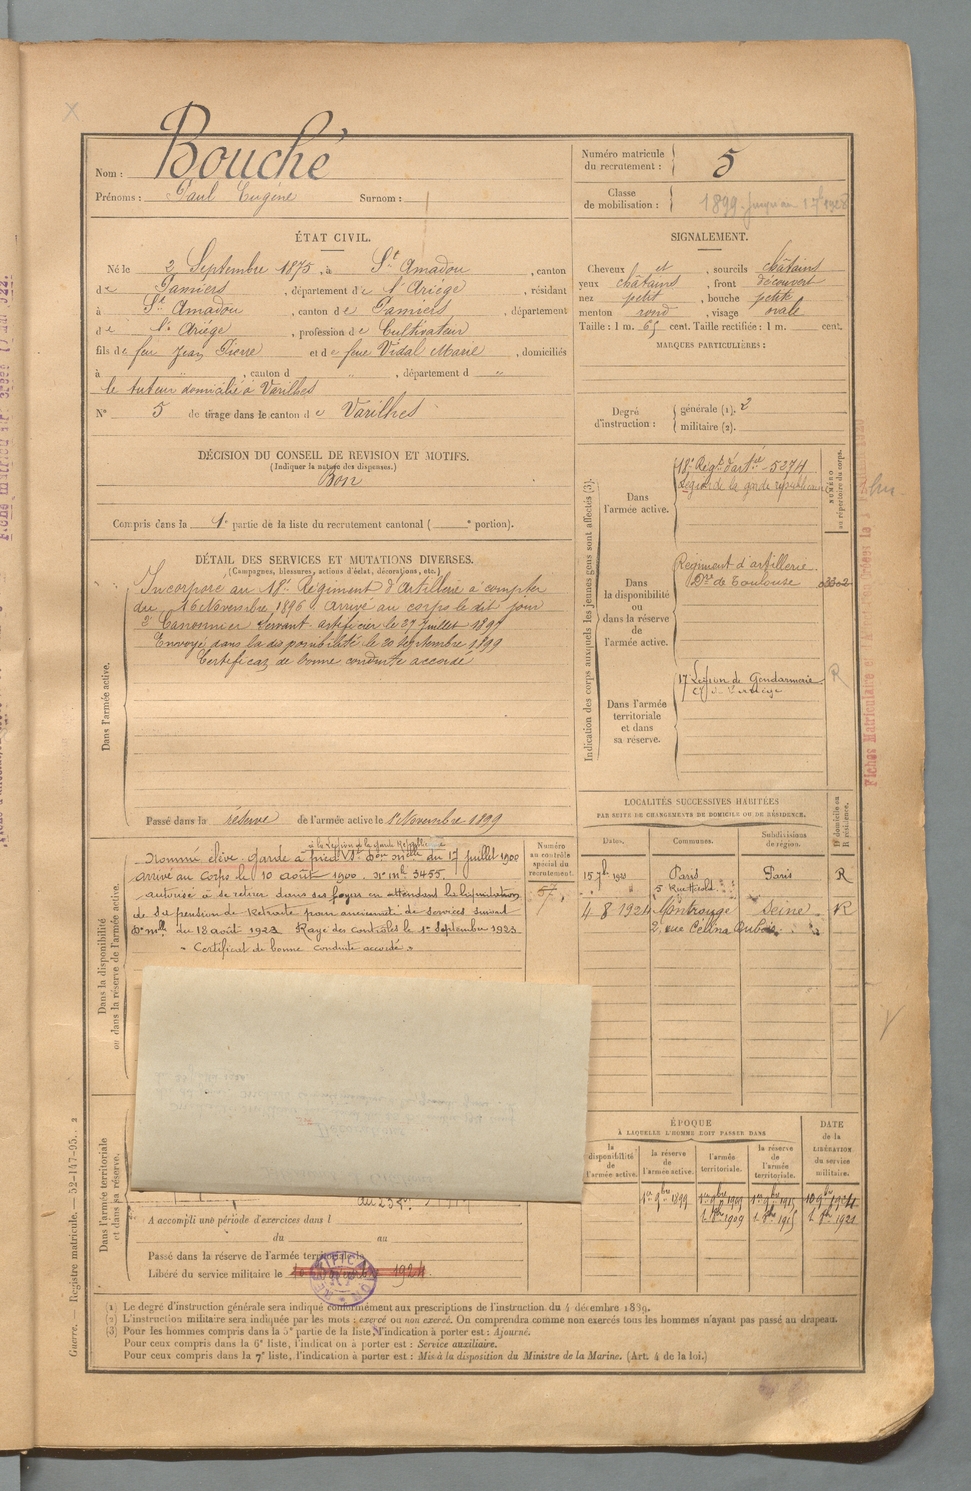 Bouché
Nom :
Prénoms : Paul Eugène Surnom :
Numéro matricule du recrutement : 5
Classe de mobilisation : 1899
ÉTAT CIVIL.
Né le 2 Septembre 1875, à St Amadou, canton
de Pamiers, département de l'Ariège, résidant
à St Amadou, canton de Pamiers, département
de l'Ariège, profession de Cultivateur
fils de feu Jean Pierre et de feue Vidal Marie, domiciliés
à " , canton d " , département d "
le tuteur domicilié à Varilhes
N° 5 de tirage dans le canton de Varilhes
SIGNALEMENT.
Cheveux et , sourcils châtains
yeux châtains , front découvert
nez petit , bouche petite
menton rond , visage ovale
Taille : 1 m. 65 cent. Taille rectifiée : 1 m. cent.
MARQUES PARTICULIÈRES :
Degré d'instruction : générale (1). 2
militaire (2).
DÉCISION DU CONSEIL DE REVISION ET MOTIFS.
(Indiquer la nature des dispenses.)
Bon
Compris dans la 1e partie de la liste du recrutement cantonal ( e portion).
DÉTAIL DES SERVICES ET MUTATIONS DIVERSES.
(Campagnes, blessures, actions d'éclat, décorations, etc.)
Dans l'armée active.
Incorporé au 18e Régiment d'Artillerie à compter
du 16 Novembre 1896. arrivé au corps le dit jour
2e Cannonier Servant artificier le 27 Juillet 1897
Envoyé dans la disponibilité le 20 Septembre 1899
Certificat de bonne conduite accordé
Passé dans la réserve de l'armée active le 1er Novembre 1899
Indication des corps auxquels les jeunes gens sont affectés (3).
NUMÉRO au répertoire du corps.
Dans l'armée active.
18e Régt d'artie - 5274
Légion de la garde républicaine
Dans la disponibilité ou dans la réserve de l'armée active.
Régiment d'artillerie
de Toulouse
Dans l'armée territoriale et dans sa réserve.
17 Légion de Gendarmerie
R
Dans la disponibilité ou dans la réserve de l'armée active.
à la Légion de la Garde Républicaine
Nommé élève-Garde à pied Vt Don mlle du 17 juillet 1900
arrivé au corps le 10 août 1900. N° mle 3455.
autorisé à se retirer dans ses foyers en attendant la liquidation
de sa pension de retraite pour ancienneté de services suivant
Don mlle du 18 août 1923 Rayé des contrôles le 1er Septembre 1923
- Certificat de bonne conduite accordé -
Numéro au contrôle spécial du recrutement.
67
LOCALITÉS SUCCESSIVES HABITÉES
PAR SUITE DE CHANGEMENTS DE DOMICILE OU DE RÉSIDENCE.
Dates. Communes. Subdivisions de région. D domicile ou R résidence.
Paris Paris R
4 8 1924 Montrouge Seine R
2, rue Célina Dubois
Dans l'armée territoriale et dans sa réserve.
A accompli une période d'exercices dans l
du au
Passé dans la réserve de l'armée territoriale le
Libéré du service militaire le 1924
ÉPOQUE
À LAQUELLE L'HOMME DOIT PASSER DANS
la disponibilité de l'armée active. la réserve de l'armée active. l'armée territoriale. la réserve de l'armée territoriale.
DATE de la LIBÉRATION du service militaire.
1er 9bre 1899 1er 9bre 1909 1er 9bre 1915
(1) Le degré d'instruction générale sera indiqué conformément aux prescriptions de l'instruction du 4 décembre 1889.
(2) L'instruction militaire sera indiquée par les mots : exercé ou non exercé. On comprendra comme non exercés tous les hommes n'ayant pas passé au drapeau.
(3) Pour les hommes compris dans la 5e partie de la liste, l'indication à porter est : Ajourné.
Pour ceux compris dans la 6e liste, l'indication à porter est : Service auxiliaire.
Pour ceux compris dans la 7e liste, l'indication à porter est : Mis à la disposition du Ministre de la Marine. (Art. 4 de la loi.)
Guerre. — Registre matricule. — 52-147-95.